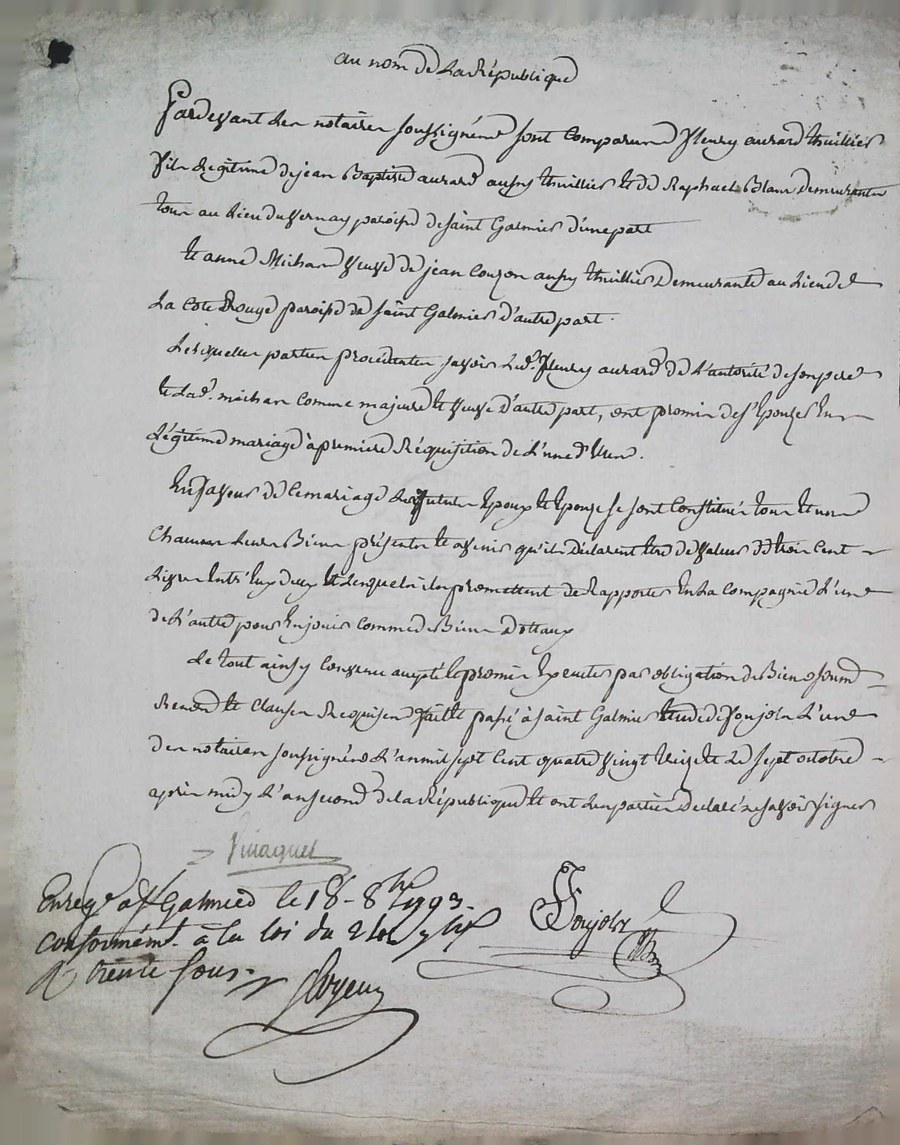 au nom de La République
Pardevant Les notaires soussignés sont comparus fleury aurard thuillier
fils Legitime de jean Baptiste aurard aussy thuillier et de Raphael Blanc demeurants
tous au Lieu du Vernay paroisse de saint Galmier d'une part
Et anne Michan veuve de jean Couzon aussy thuillier Demeurante au Lieu de
La Cote Rouge paroisse de saint Galmier d'autre part.
Lesquelles parties procédentes savoir Led. fleury aurard de L'autorité de son pere
et Lad. michan comme majeure et veuve d'autre part, ont promis de s'Epouzer En
Légitime mariage à premiere Réquisition de L'une d'Elles.
En faveur de Ce mariage Les futurs Epoux et Epouze se sont Constitués tous et uns
Chacuns Leurs Biens présents et avenir qu'ils Déclarent être de valeur de trois Cent
Livres Entr'Eux deux et Lesquels ils promettent de Rapporter En La Compagnie L'un
de L'autre pour En jouir Comme de Biens Dottaux
Le tout ainsy Convenu accepté et promis Executer par obligation de Biens soumis
Renon et Clauses Requises fait et passé à saint Galmier Etude de Soujols L'un
des notaires soussignés L'an mil sept Cent quatre vingt treize et Le sept octobre
après midy L'an second de la République et ont Les parties Declaré ne savoir signer
Soujols
Enregé à St Galmier le 18 8bre 1793.
conformémt. à la loi du
R trente sous.